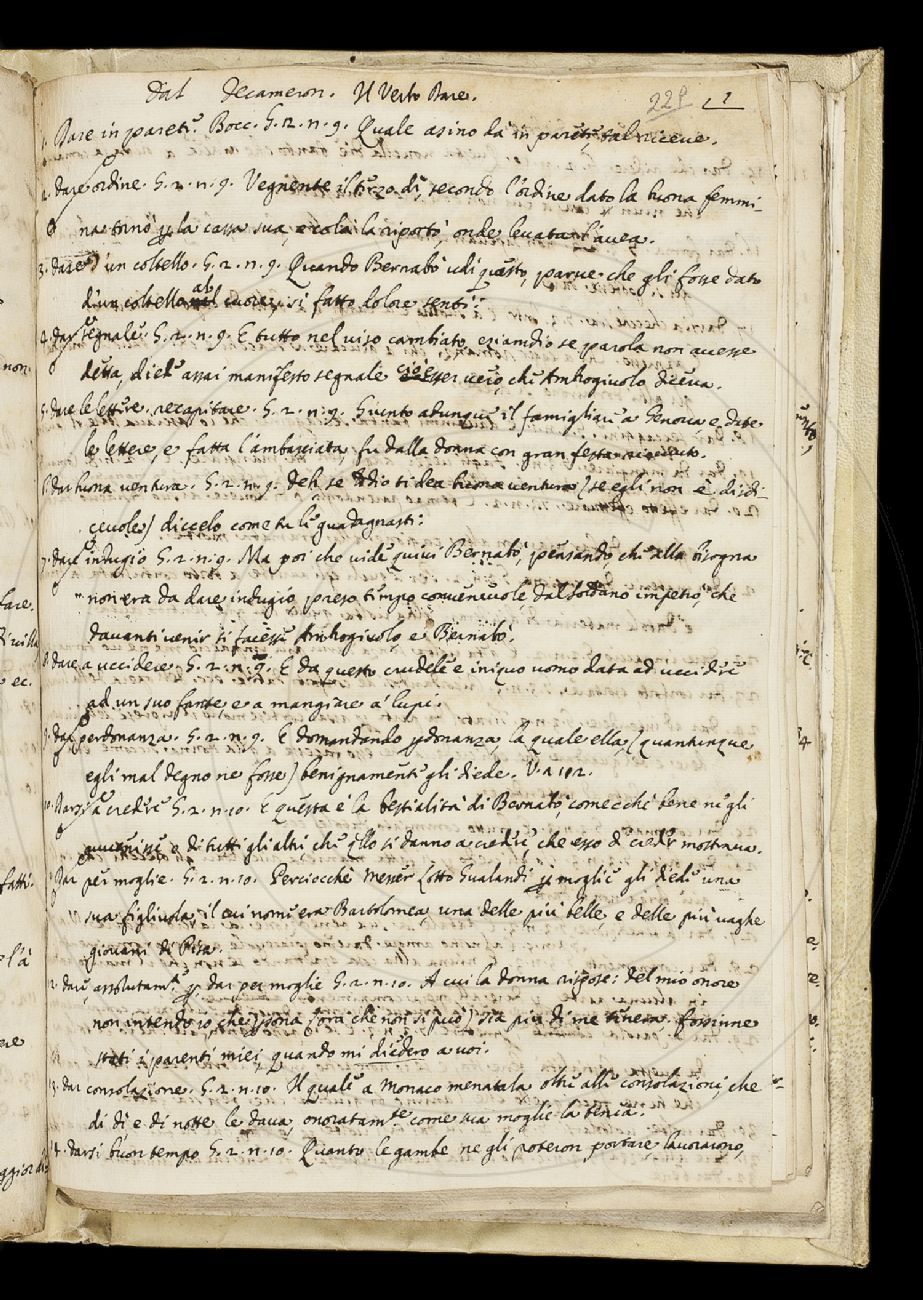 Dal Decameron. Il Verbo Dare.
229 1
1. Dare in pareti. Bocc. G. 2. n. 9. Quale asino dà in pareti, tal riceve.
2. dare ordine. G. 2. n. 9. Vegnente il terzo dì, secondo l'ordine dato la buona femmi-
na tornò p la cassa sua, e colà la riportò, onde levata l'avea.
3. dare d'un coltello. G. 2. n. 9. Quando Bernabò udì questo, parve che gli fosse dato
d'un coltello al cuore, si fatto dolore sentì:
4. dar segnale. G. 2. n. 9. E tutto nel viso cambiato, eziamdio se parola non avesse
detta, diede assai manifesto segnale ciò esser vero, che Ambrogivolo diceva.
5. dare le lettere, recapitare. G. 2. n. 9. Giunto adunque il famigliare a Genova e date
le lettere, e fatta l'ambasciata, fu dalla donna con gran festa ricevuto.
6. dar buona ventura. G. 2. n. 9. Deh, se Iddio ti dea buona ventura (se egli non è disdi-
cevole) diccelo come tu le guadagnasti:
7. dare indugio G. 2. n. 9. Ma poi che vide quivi Bernabò, pensando, che alla bisogna
non era da dare indugio, preso tempo convenevole dal Soldano impetrò, che
davanti venir si facesse Ambrogivolo, e Bernabò.
8. dare a uccidere. G. 2. n. 9. E da questo crudele e iniquo uomo data ad uccidere
ad un suo fante, e a mangiare a' lupi.
9. dar perdonanza. G. 2. n. 9. E domandando pdonanza, la quale ella, (quantunque
egli mal degno ne fosse) benignamente gli diede. V. a 192.
10. Darsi a credere G. 2. n. 10. E questa è la bestialità di Bernabò, comecchè bene ne gli
avvenisse e di tutti gli altri che qllo si danno a credere, che esso di creder mostrava.
Dar per moglie. G. 2. n. 10. Perciocchè Messer Lotto Gualandi p moglie gli diede una
sua figliuola, il cui nome era Bartolomea, una delle più belle, e delle più vaghe
giovani di Pisa.
2. dare, assolutam.te p dar per moglie G. 2. n. 10. A cui la donna rispose: del mio onore
non intendo io, che psona (ora che non si può) sia più di me tenera, fossinne
stati i parenti miei, quando mi diedero a voi.
3. dar consolazione. G. 2. n. 10. Il quale a Monaco menatala oltre alle consolazioni, che
di dì e di notte le dava, onoratam.te come sua moglie la tenea.
14. darsi buon tempo G. 2. n. 10. Quanto le gambe ne gli poteron portare, lavorarono,